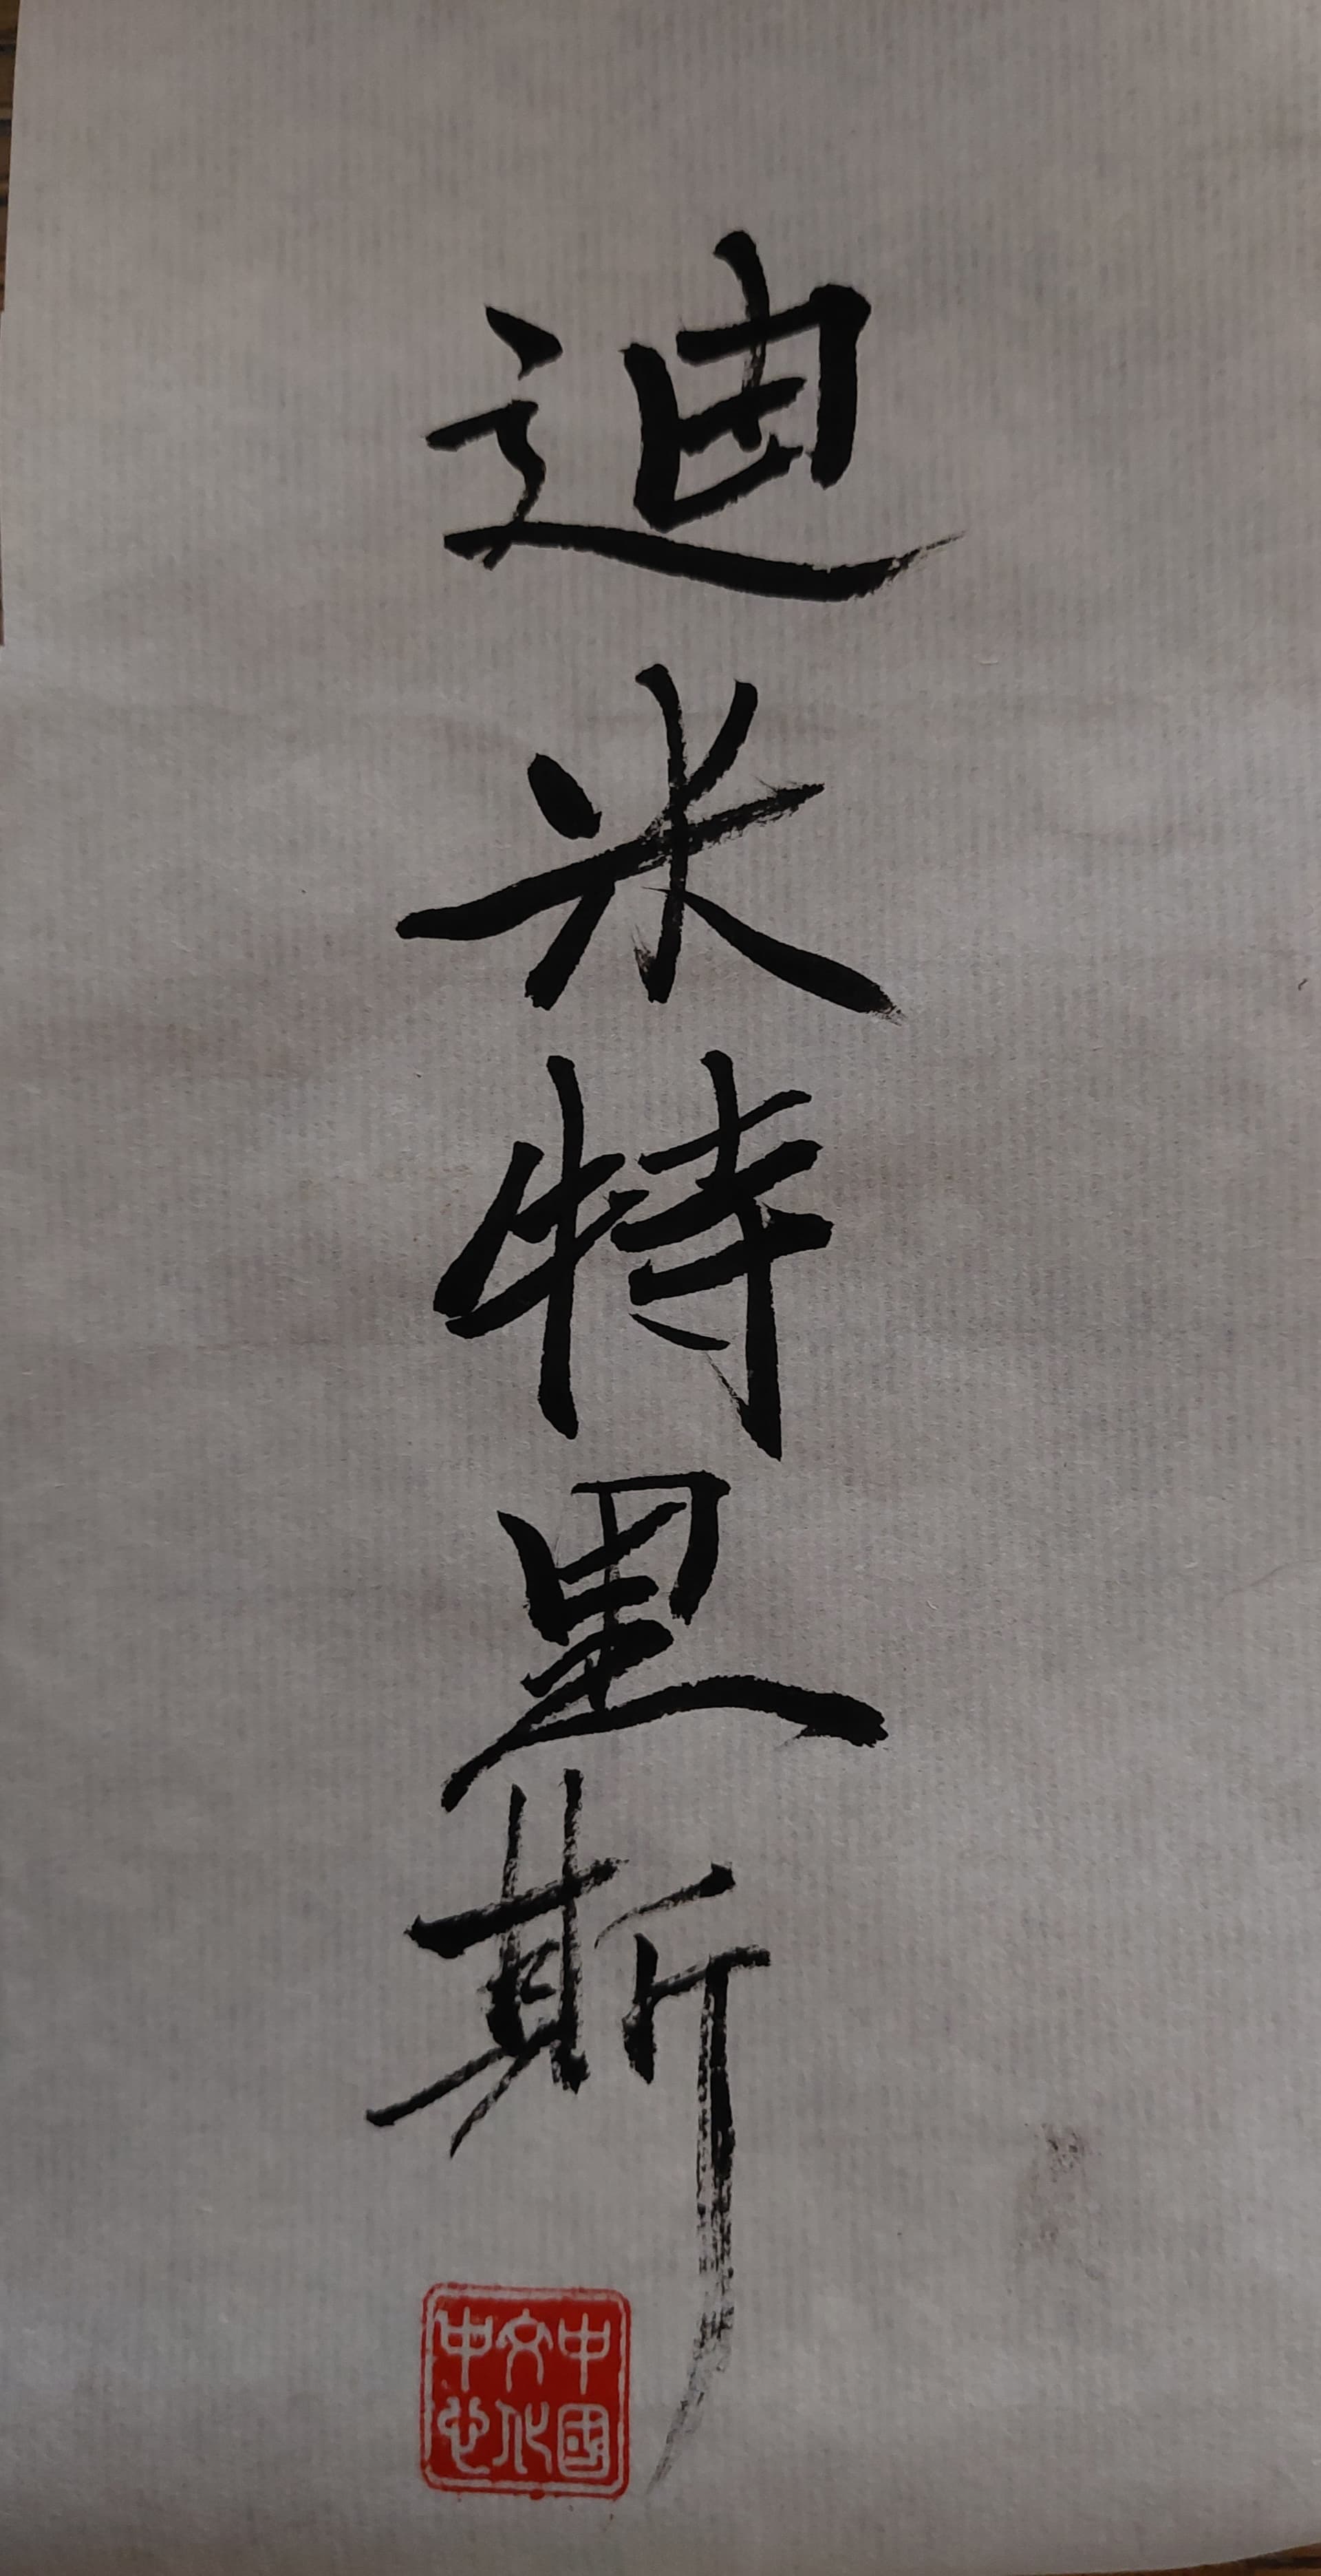 迪米特里斯
中國
文化
中心